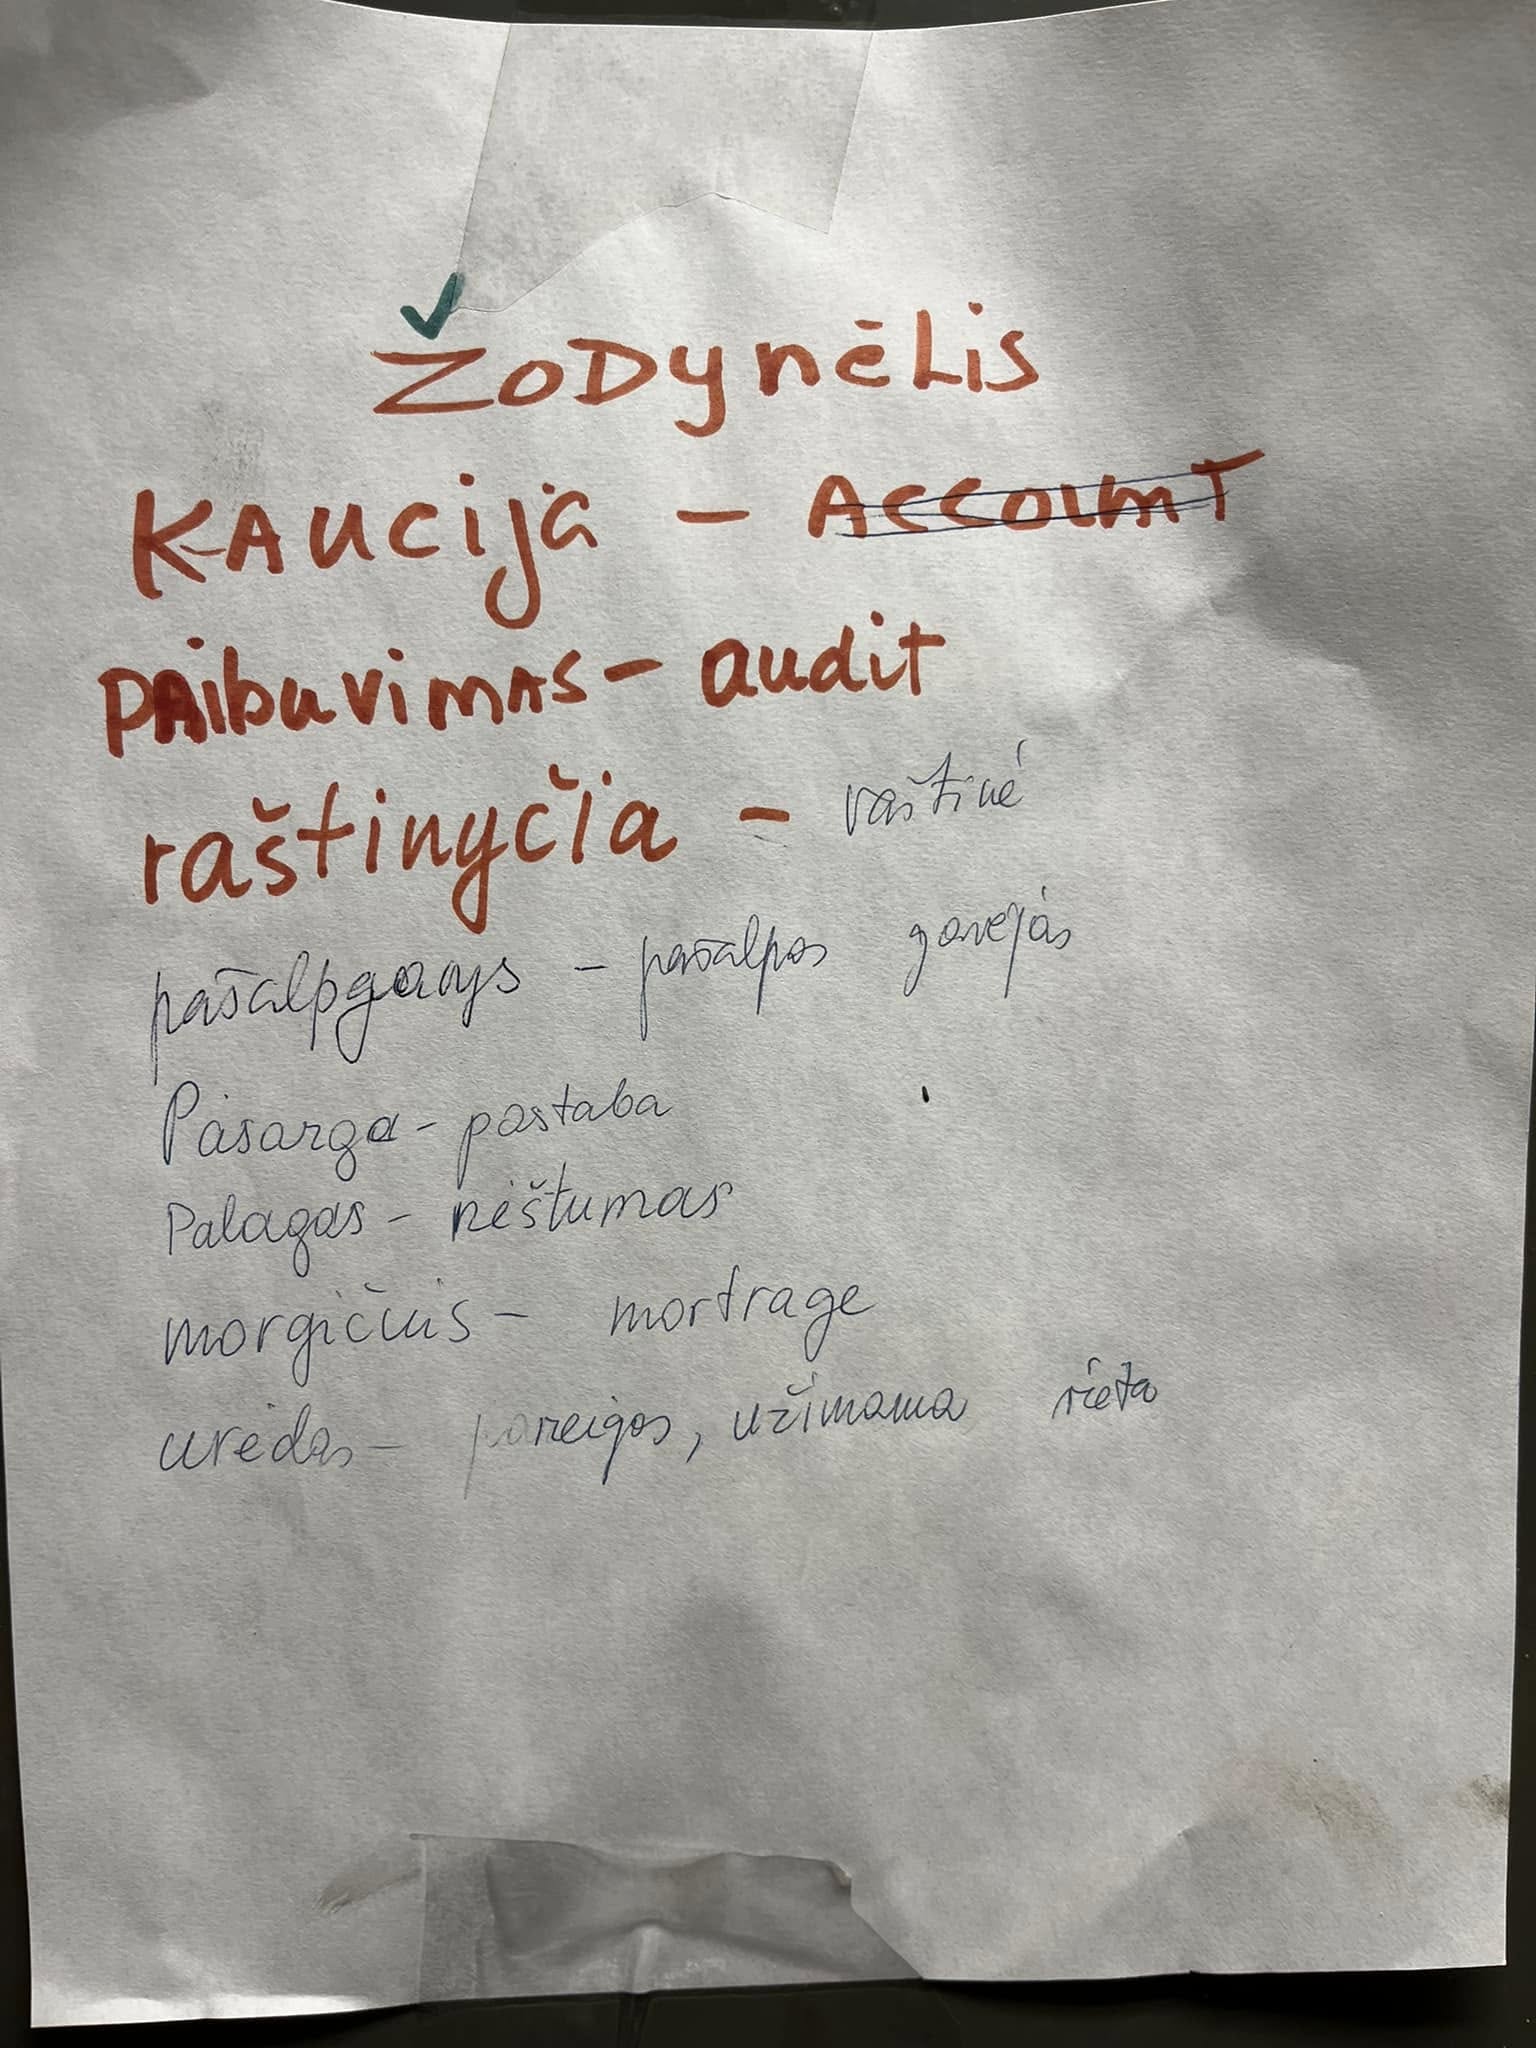 ŽODynėLis
KAucija – Account
PAibuvimas – audit
raštinyčia – raštinė
pašalpgavys – pašalpos gavėjas
Pasarga – pastaba
Palagas – nėštumas
morgičius – mortrage
urėdas – pareigos, užimama vieta